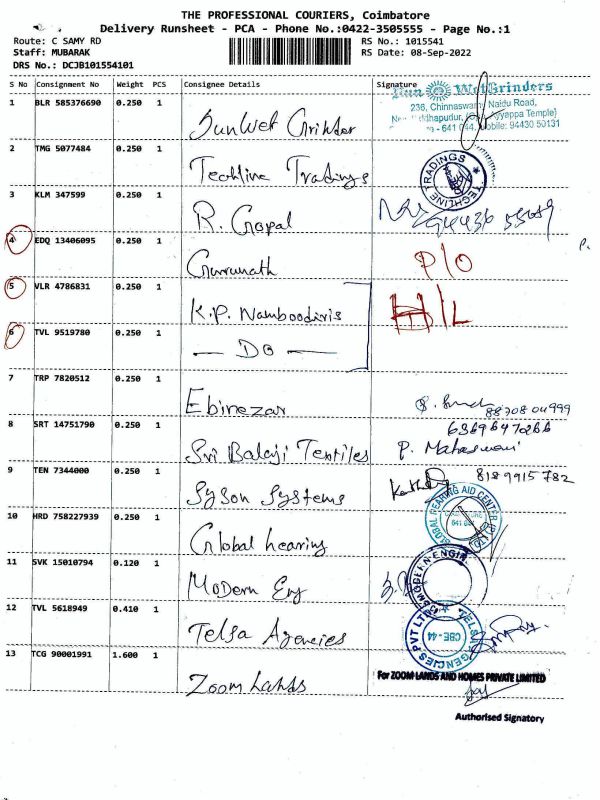 THE PROFESSIONAL COURIERS, Coimbatore
Delivery Runsheet - PCA - Phone No.:0422-3505555 - Page No.:1
Route: C SAMY RD
RS No.: 1015541
Staff: MUBARAK
RS Date: 08-Sep-2022
DRS No.: DCJB101554101
S No Consignment No Weight PCS Consignee Details Signature
1 BLR 585376690 0.250 1 Sun Wet Grinder
Sun WetGrinders
236, Chinnaswamy Naidu Road,
Ayyappa Temple)
- 641 044. Mobile: 94430 50131
2 TMG 5077484 0.250 1 Techline Tradings
TECHLINE TRADINGS
3 KLM 347599 0.250 1 R. Gopal
4 EDQ 13406095 0.250 1 Gurunath P/O
5 VLR 4786831 0.250 1 K.P. Namboodiris H/L
6 TVL 9519780 0.250 1 — DO —
7 TRP 7820512 0.250 1 Ebinezar
8870804999
8 SRT 14751790 0.250 1 Sri Balaji Textiles
6369647266
P. Maheswari
9 TEN 7344000 0.250 1 Syson Systems
8189915782
10 HRD 758227939 0.250 1 Global hearing
GLOBAL HEARING AID CENTER
641 044
11 SVK 15010794 0.120 1 Modern Eng
MODERN ENGI
12 TVL 5618949 0.410 1 Telsa Agencies
TELSA AGENCIES PVT LTD
CBE - 44
13 TCG 90001991 1.600 1 Zoom Lands
For ZOOM LANDS AND HOMES PRIVATE LIMITED
Authorised Signatory